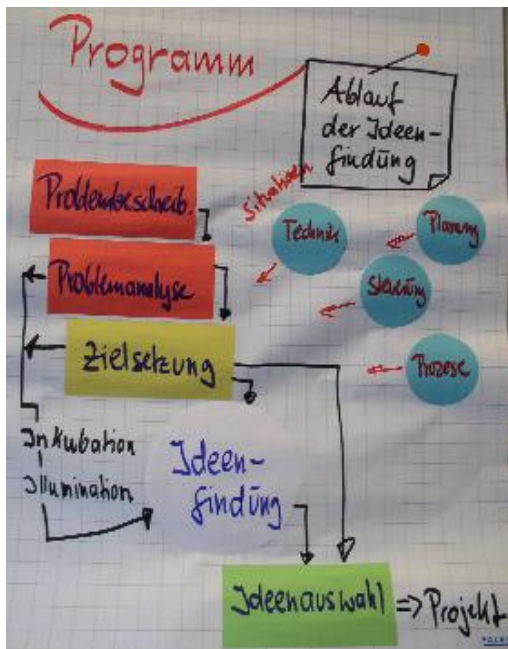 Programm
Ablauf
der Ideen-
findung
Problembeschreib.
Situationen
Technik
Planung
Problemanalyse
Steuerung
Zielsetzung
Prozese
Inkubation
Illumination
Ideen-
findung
Ideenauswahl
=> Projekt